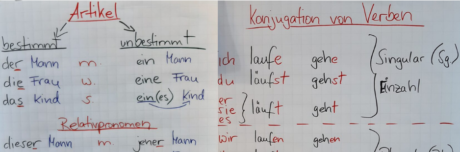 Artikel
bestimmt unbestimmt
der Mann m ein Mann
die Frau w. eine Frau
das Kind s. ein(es) Kind
Relativpronomen
dieser Mann m jener Mann
Konjugation von Verben
ich laufe gehe Singular (Sg.)
du läufst gehst Einzahl
er
sie läuft geht
es
wir laufen gehen